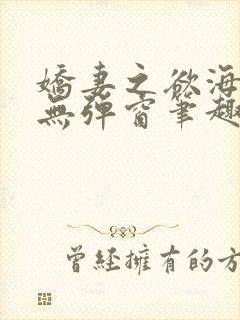 嬌妻之欲海
無彈窗筆趣
曾經擁有的方